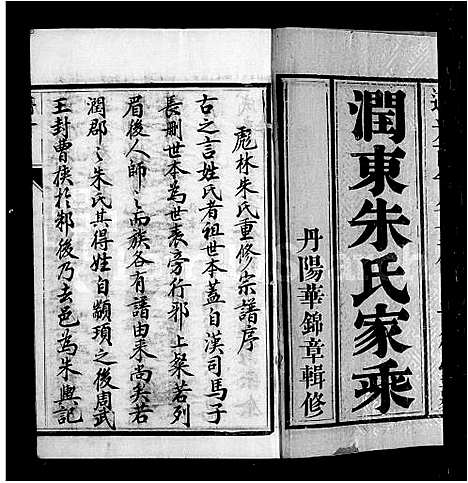 潤東朱氏家乘
丹陽華錦章輯修
彪林朱氏重修宗譜序
古之言姓氏者祖世本蓋自漢司馬子
長刪世本為世表旁行邪上粲若列
眉後人師〻而族各有譜由来尚矣若
潤郡〻朱氏其得姓自顓頊之後周武
王封曹挾於邾後乃去邑為朱與記